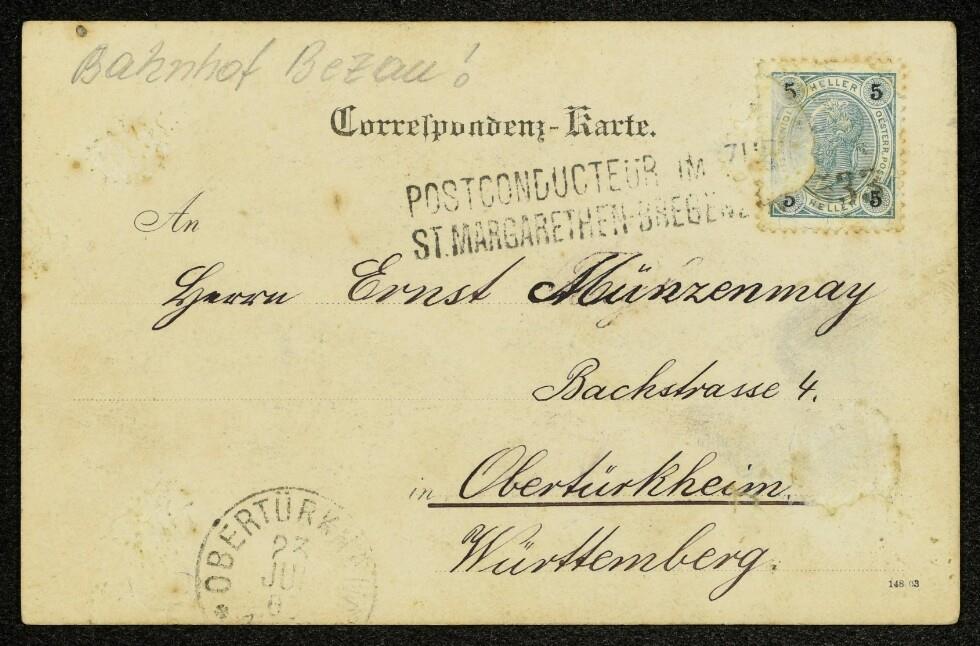 Bahnhof Bezau!
Correspondenz-Karte.
5 HELLER 5
OESTERR. POST
5 HELLER 5
POSTCONDUCTEUR IM
ST. MARGARETHEN-BREGENZ
An
Herrn Ernst Münzenmay
Bachstrasse 4.
in Obertürkheim.
Württemberg.
* OBERTÜRKHEIM
23
JU
148 03